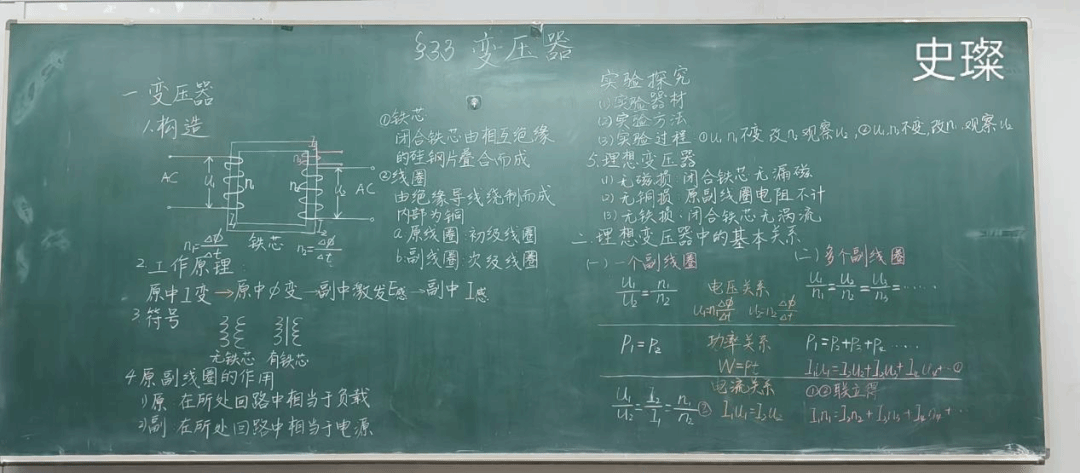 §3.3 变压器
史璨
一 变压器
1.构造
AC U₁ n₁ n₂ U₂ AC
n₃
铁芯
①铁芯
闭合铁芯由相互绝缘
的硅钢片叠合而成
②线圈
由绝缘导线绕制而成
内部为铜
a.原线圈 初级线圈
b.副线圈 次级线圈
2.工作原理
原中I变→原中ϕ变→副中激发E感→副中I感
3.符号
无铁芯 有铁芯
4.原副线圈的作用
1)原 在所处回路中相当于负载
2)副 在所处回路中相当于电源
实验探究
(1)实验器材
(2)实验方法
(3)实验过程 ①U₁n₁不变,改n₂观察U₂,②U₁n₂不变,改n₁观察U₂
5.理想变压器
(1)无磁损 闭合铁芯无漏磁
(2)无铜损 原副线圈电阻不计
(3)无铁损:闭合铁芯无涡流
二.理想变压器中的基本关系
(一)一个副线圈
U₁/U₂=n₁/n₂ 电压关系
U₁=n₁Δϕ/Δt U₂=n₂Δϕ/Δt
P₁=P₂ 功率关系
W=Pt
U₁/U₂=I₂/I₁=n₁/n₂ 电流关系
② I₁U₁=I₂U₂
(二)多个副线圈
U₁/n₁=U₂/n₂=U₃/n₃=……
P₁=P₂+P₃+P₄……
I₁U₁=I₂U₂+I₃U₃+I₄U₄+…①
①②联立得
I₁n₁=I₂n₂+I₃n₃+I₄n₄+…